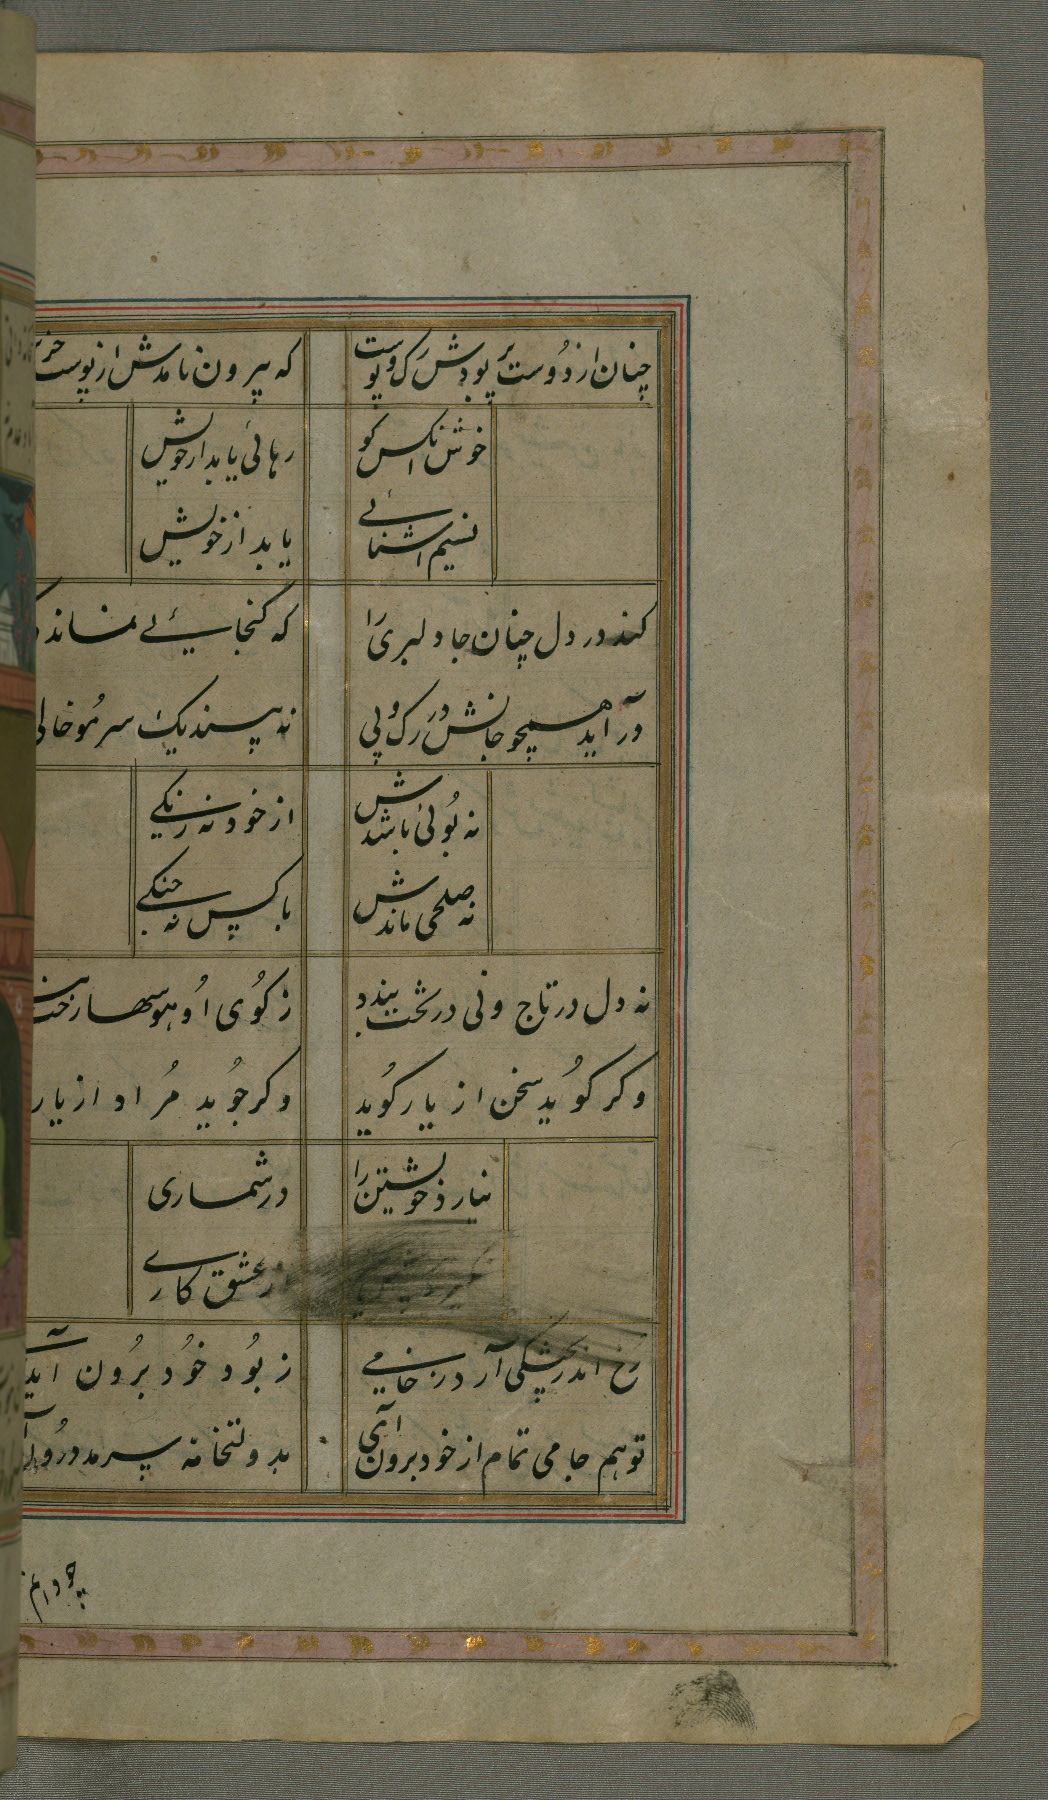 چنان از دوست پر بودش رگ و پوست که بیرون نامدش از پوست جز
خوش انکس کو رهائی یابد از خویش
نسیم اشنائی یابد از خویش
کند در دل چنان جا دلبری را که گنجایئی نماند
در آید همچو جانش در رگ و پی نه پسندیک سر مو خالی
نه بوئی باشدش از خود نه رنگی
نه صلحی ماندش با کس نه جنگی
نه دل در تاج و نی در تخت بندد ز کوی او هوسها رخت
وگر گوید سخن از یار گوید وگر جوید مراد از یار
نیارد خویشتن را در شماری
نگیرد پیش عشق کاری
رخ اندر پختگی آرد ز خامی ز بود خود برون آید
تو هم جامی تمام از خود برون آی بدولتخانه سرمد درون
چو دانم